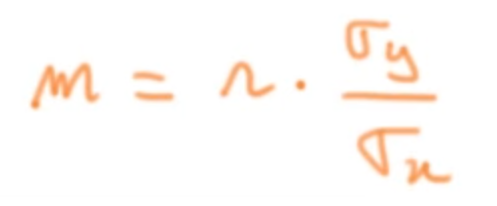 m = r · σy / σx